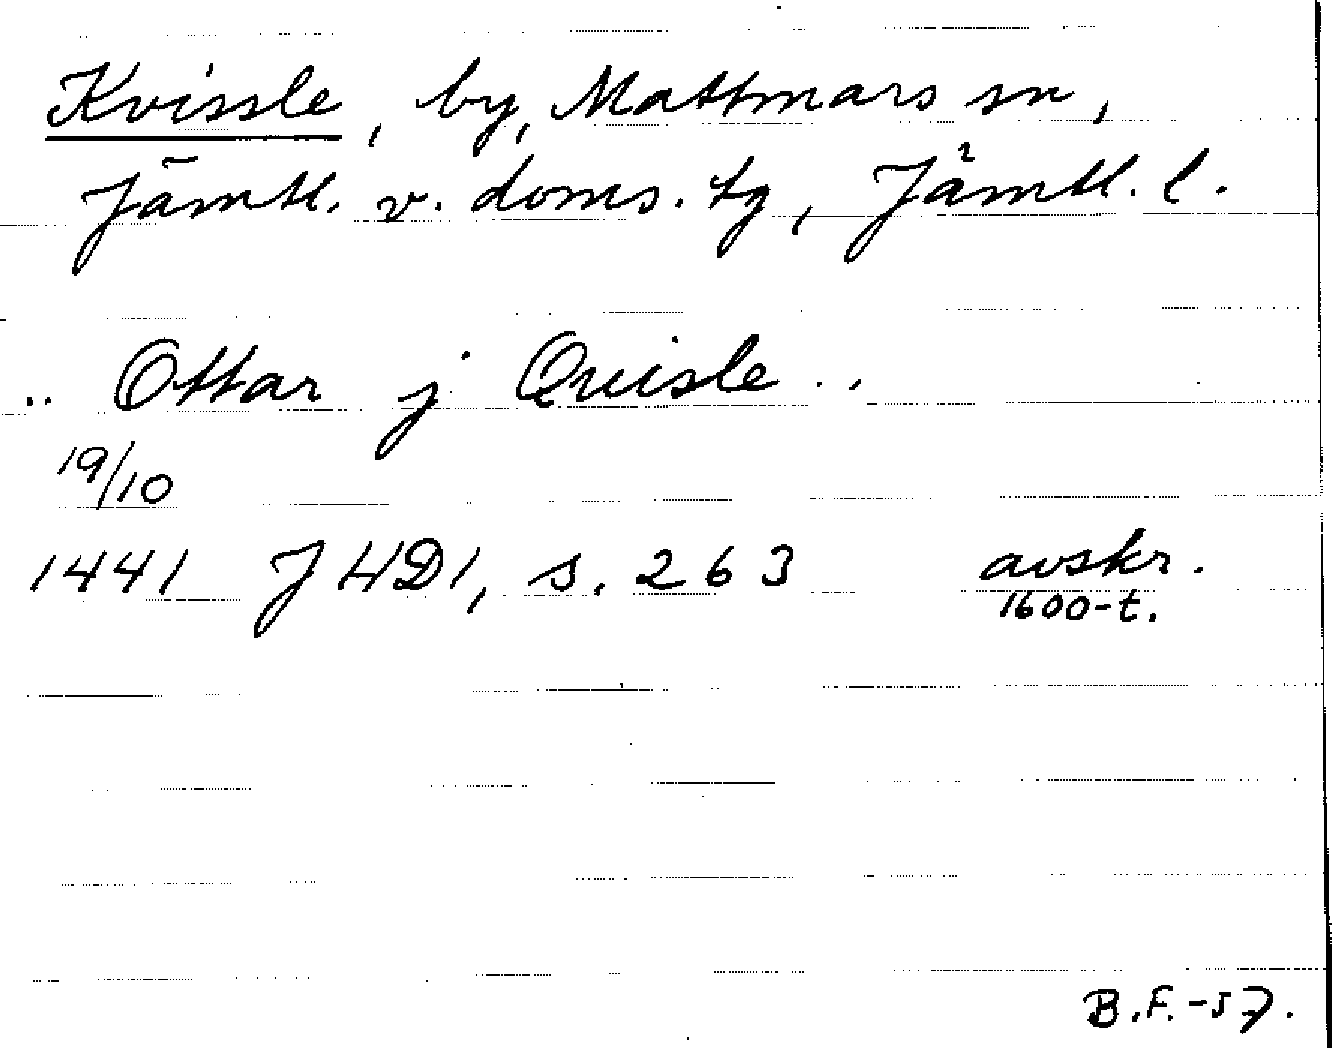 Kvissle, by, Mattmars sn,
Jämtl. v. doms. tg, Jämtl. l.
.. Ottar j Quisle ..
19/10
1441 J HD1, s. 263 avskr.
1600-t.
B.F.-57.